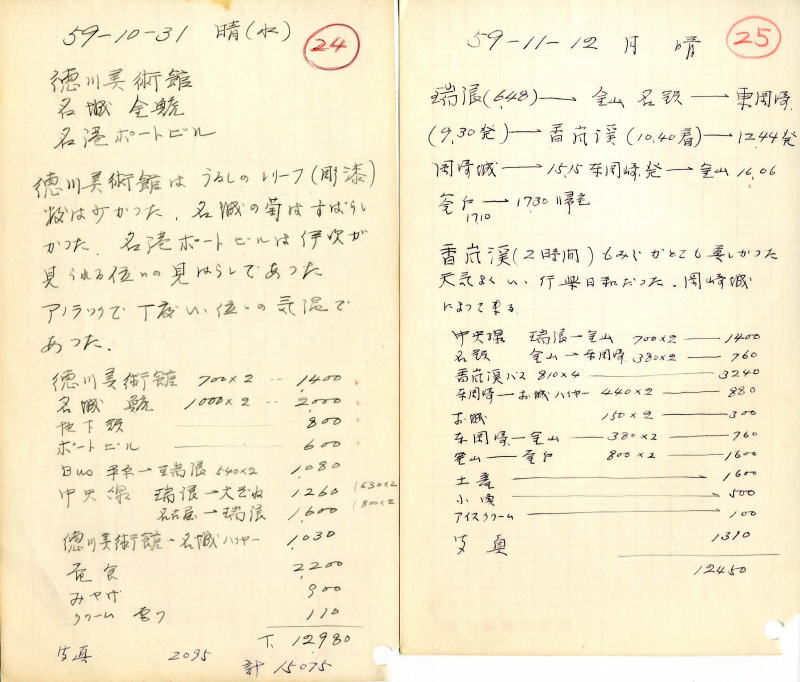 59-10-31 晴(水) 24
徳川美術館
名城
名港ポートビル
徳川美術館は うるしのレリーフ(彫漆)
数は少かつた、名城の菊はすばらし
かつた、名港ポートビルは伊吹が
見られる位いの見はらしであつた
アノラックで丁度いい位いの気温で
あつた、
徳川美術館 700×2 1,400
名城 1000×2 2,000
地下鉄 800
ポートビル 600
Bus 瑞浪 540×2 1,080
中央線 瑞浪→大ぞね 1260 (630×2
名古屋→瑞浪 1,600 (800×2
徳川美術館→名城 ハイヤー 1,030
昼食 2,200
みやげ 900
クリーム 110
下 12,980
写真 2095
計 15075
59-11-12 月 晴 25
瑞浪(6,48)→ 金山 名鉄 → 東岡崎
(9,30発)→香嵐渓(10,40着)→1244発
岡崎城 → 15,15 東岡崎発→金山 16,06
釜戸 → 1730 帰宅
1710
香嵐渓(2時間)もみじがとても美しかつた
天気よくいい行楽日和だつた、岡崎城
によつて来る
中央線 瑞浪―金山 700×2 ― 1400
名鉄 金山→東岡崎 380×2 ― 760
香嵐渓バス 810×4 ― 3240
東岡崎―お城ハイヤー 440×2 ― 880
お城 150×2 ― 300
東岡崎―金山 ― 380×2 ― 760
金山―釜戸 800×2 ― 1600
土産 1600
500
アイスクリーム 100
写真 1310
12450